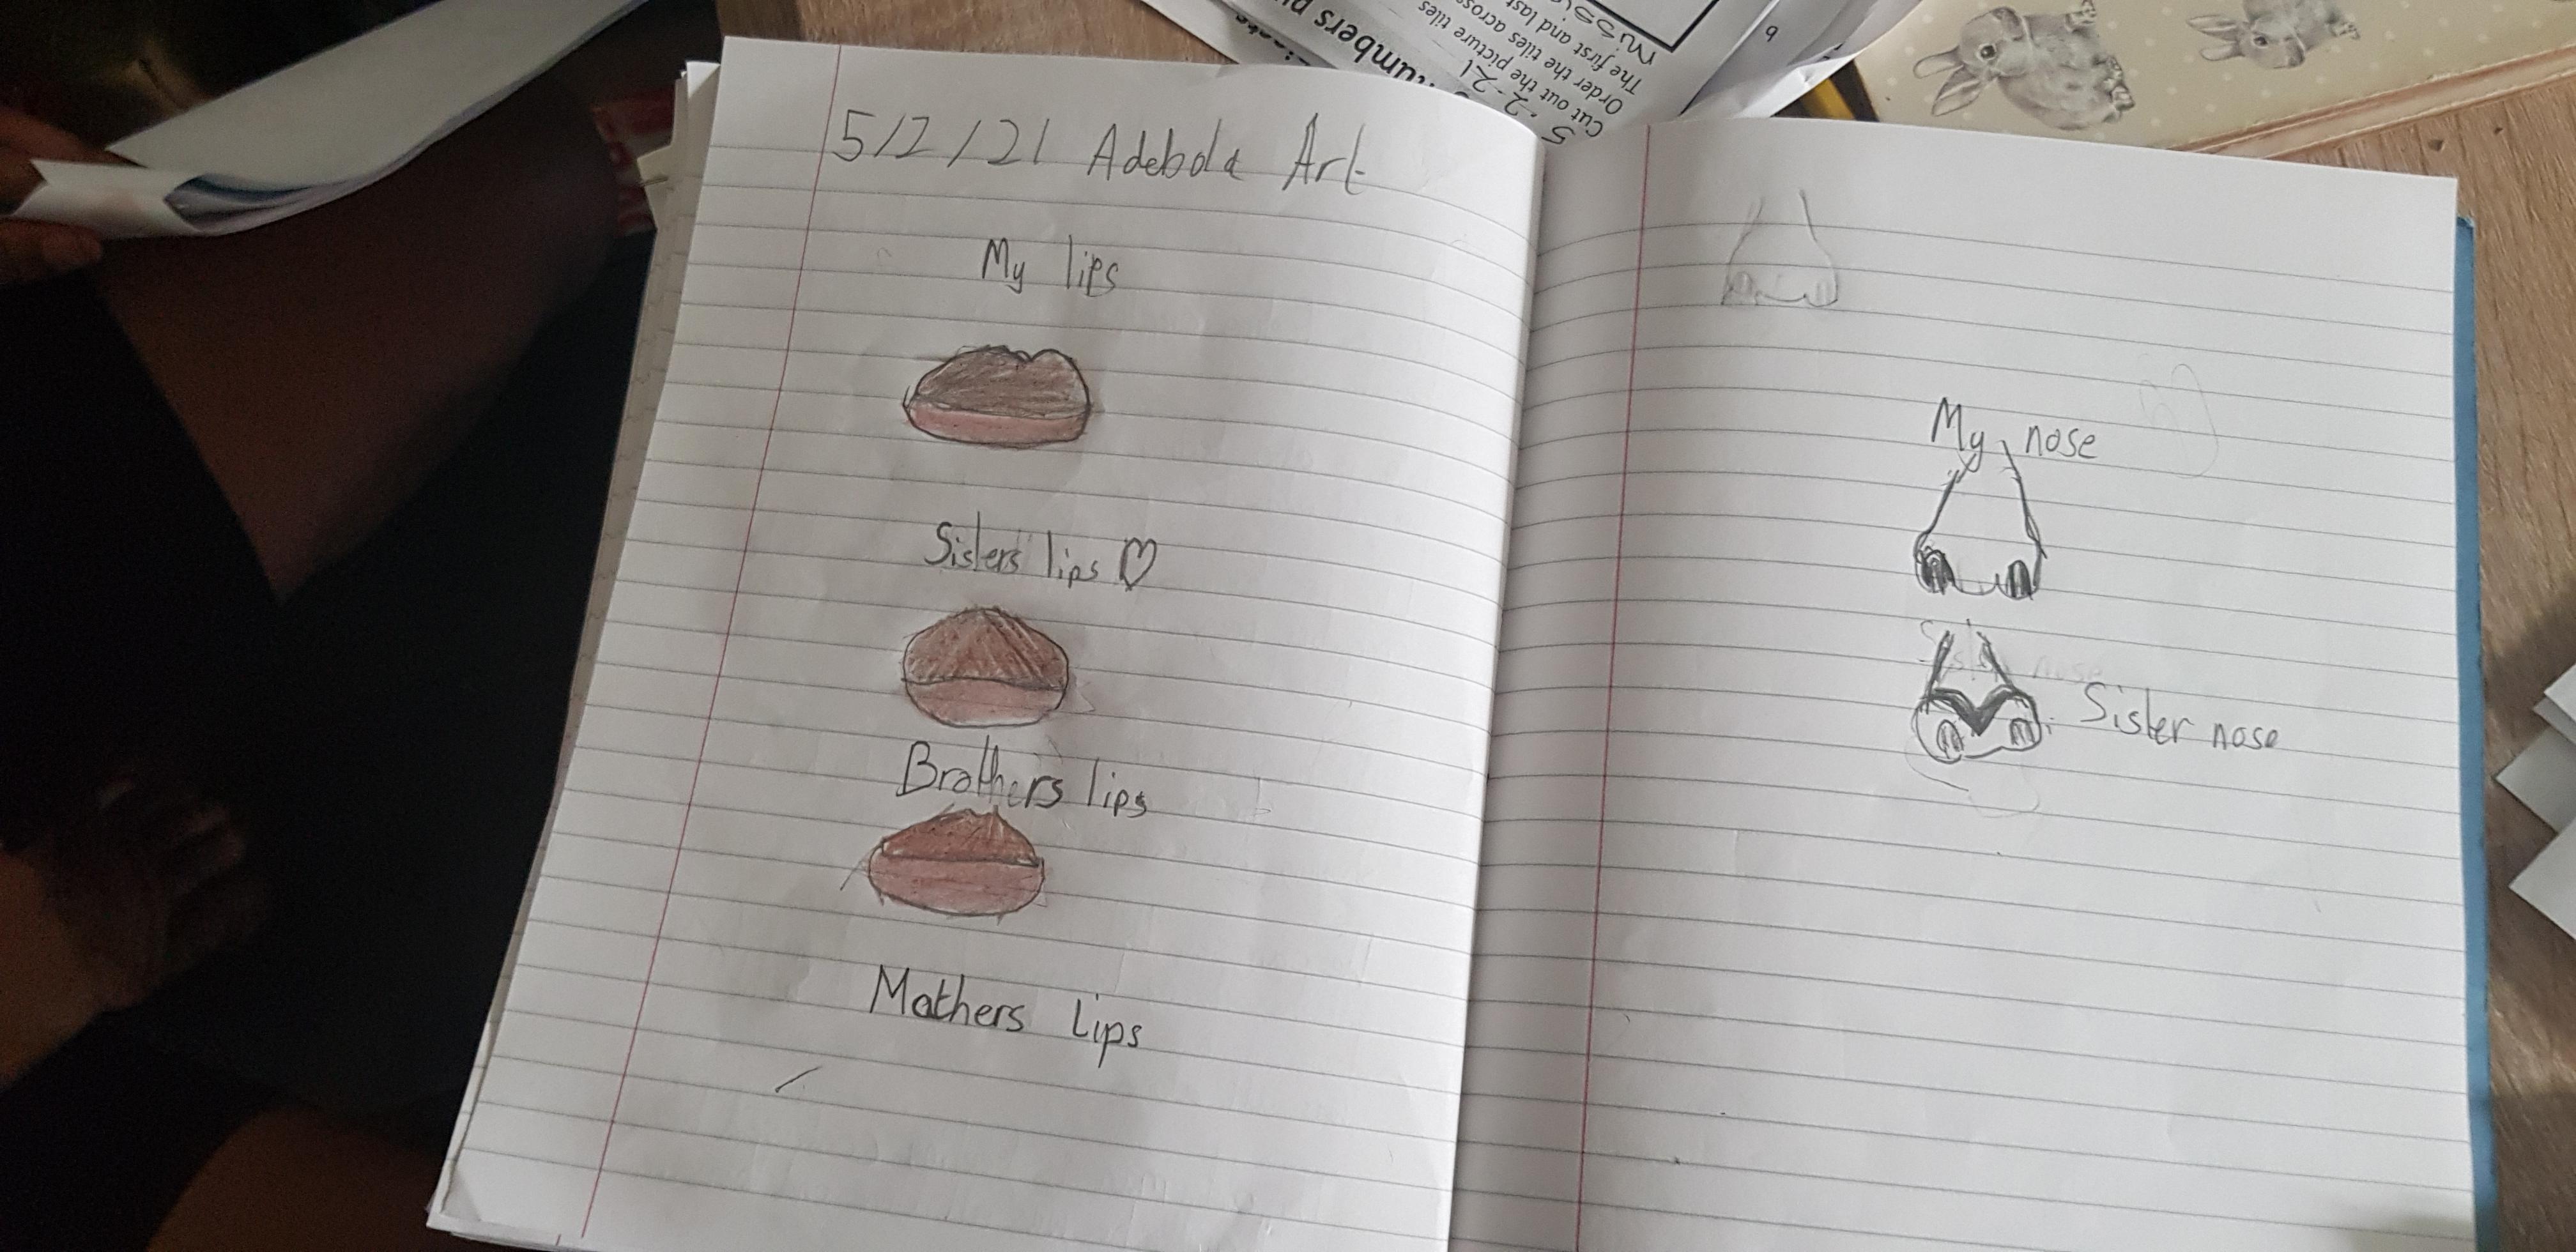 5/2/21 Adebola Art
My lips
Sisters lips ♡
Brothers lips
Mothers Lips
My nose
Sister nose
umbers p
Cut out the picture tiles
Order the tiles across
The first and last
5-2-21